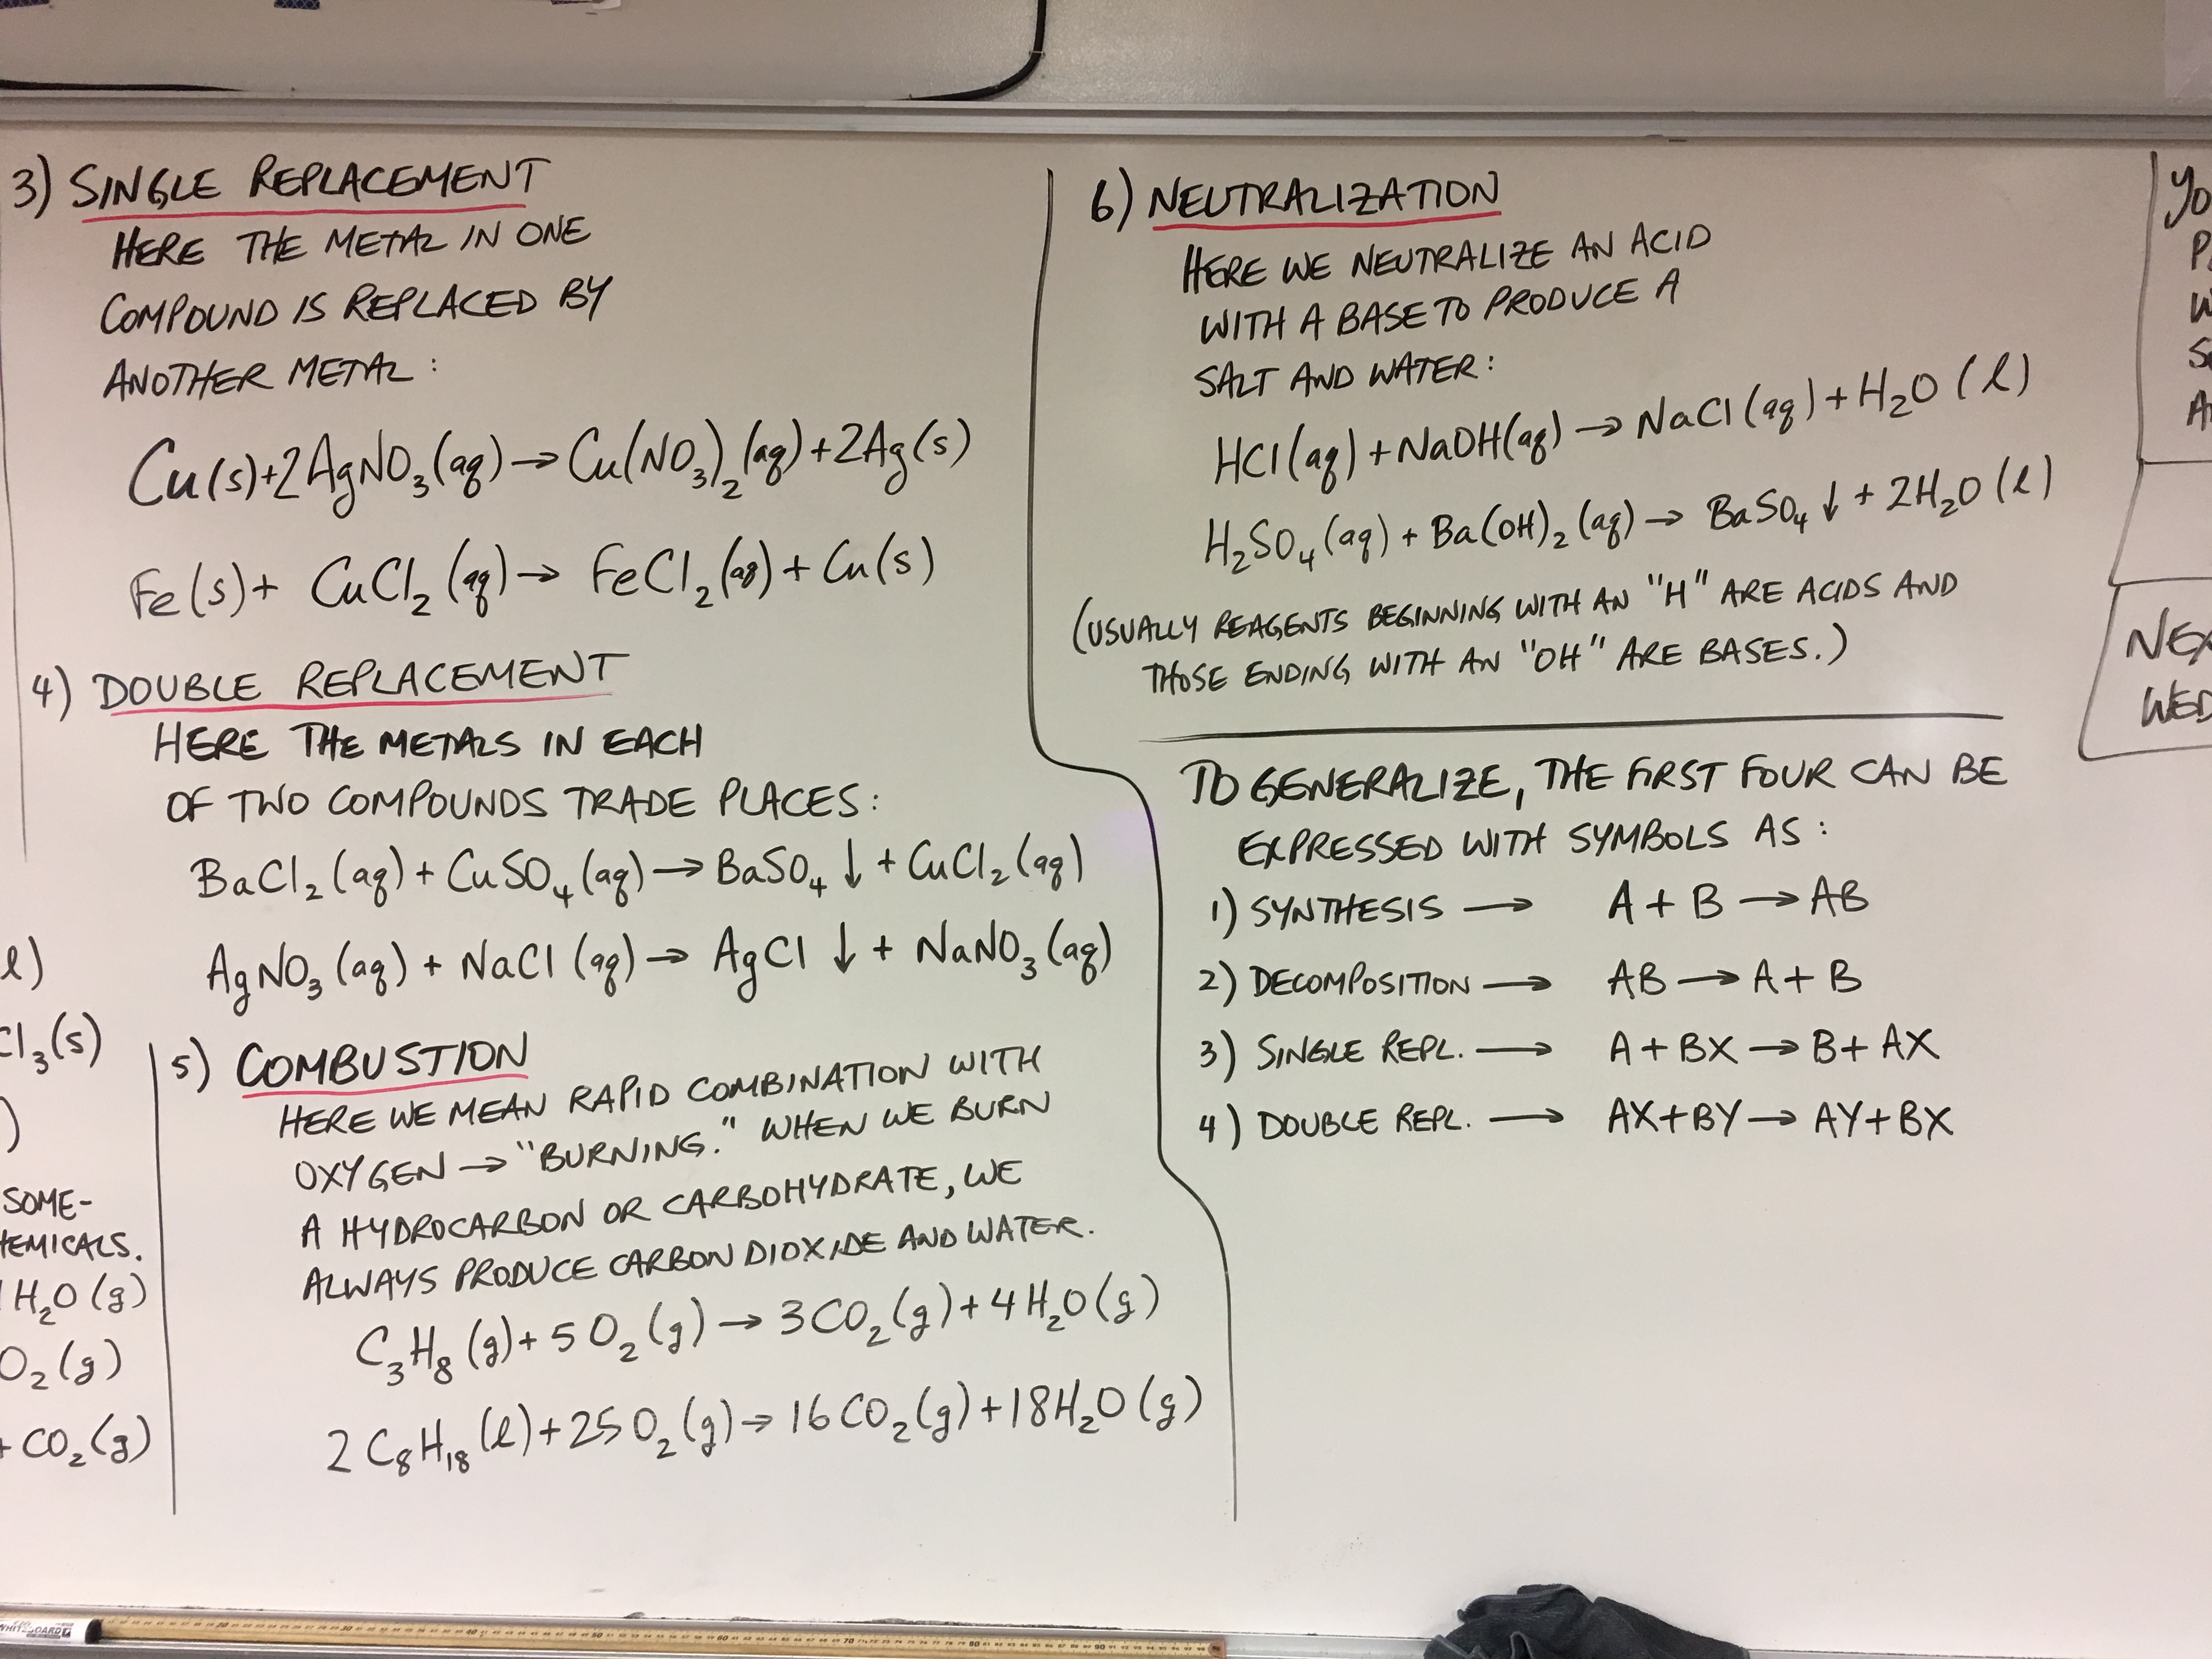 3) SINGLE REPLACEMENT
HERE THE METAL IN ONE
COMPOUND IS REPLACED BY
ANOTHER METAL:
Cu(s)+2AgNO₃(aq)→Cu(NO₃)₂(aq)+2Ag(s)
Fe(s)+ CuCl₂(aq)→ FeCl₂(aq)+Cu(s)
4) DOUBLE REPLACEMENT
HERE THE METALS IN EACH
OF TWO COMPOUNDS TRADE PLACES:
BaCl₂(aq)+CuSO₄(aq)→BaSO₄↓+CuCl₂(aq)
AgNO₃(aq)+NaCl(aq)→AgCl↓+NaNO₃(aq)
5) COMBUSTION
HERE WE MEAN RAPID COMBINATION WITH
OXYGEN→"BURNING." WHEN WE BURN
A HYDROCARBON OR CARBOHYDRATE, WE
ALWAYS PRODUCE CARBON DIOXIDE AND WATER.
C₃H₈(g)+5O₂(g)→3CO₂(g)+4H₂O(g)
2C₈H₁₈(l)+25O₂(g)→16CO₂(g)+18H₂O(g)
l)
Cl₃(s)
)
SOME-
HEMICALS.
H₂O(g)
O₂(g)
+CO₂(g)
6) NEUTRALIZATION
HERE WE NEUTRALIZE AN ACID
WITH A BASE TO PRODUCE A
SALT AND WATER:
HCl(aq)+NaOH(aq)→NaCl(aq)+H₂O(l)
H₂SO₄(aq)+Ba(OH)₂(aq)→BaSO₄↓+2H₂O(l)
(USUALLY REAGENTS BEGINNING WITH AN "H" ARE ACIDS AND
THOSE ENDING WITH AN "OH" ARE BASES.)
TO GENERALIZE, THE FIRST FOUR CAN BE
EXPRESSED WITH SYMBOLS AS:
1) SYNTHESIS → A+B→AB
2) DECOMPOSITION → AB→A+B
3) SINGLE REPL. → A+BX→B+AX
4) DOUBLE REPL. → AX+BY→AY+BX
YO
NEX
WED